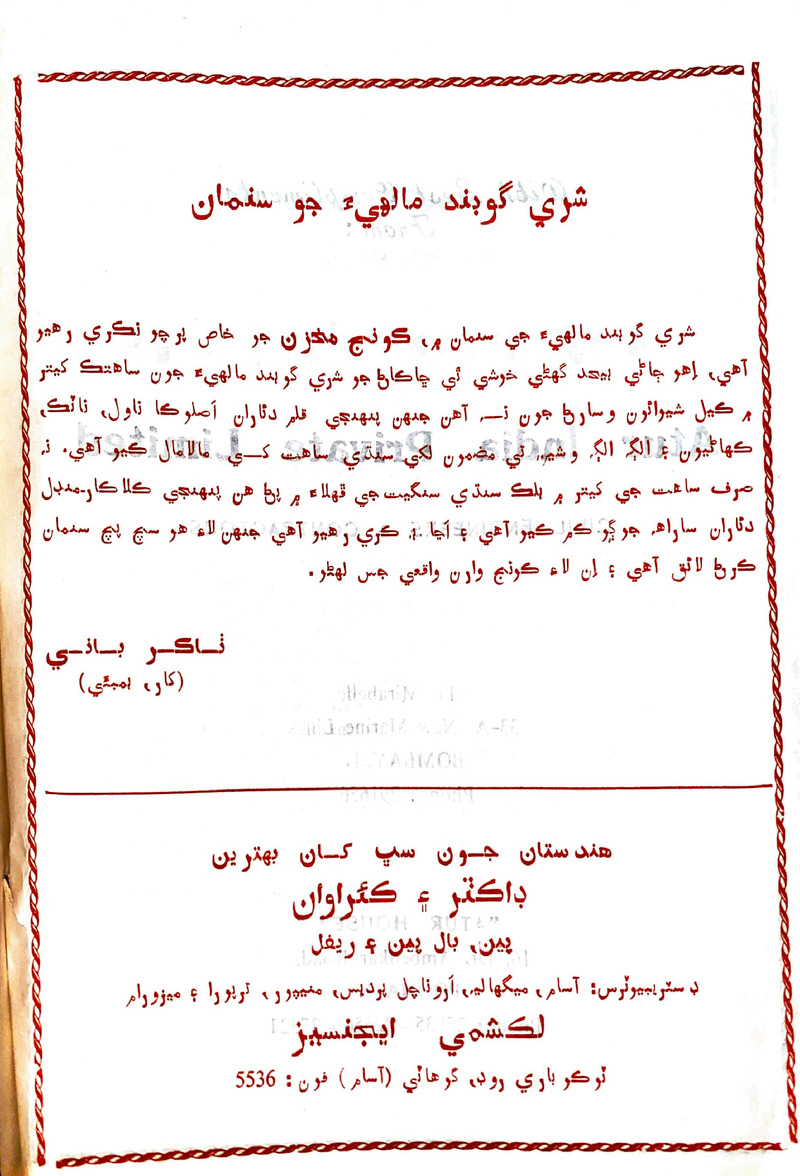 شري گوبند مالهيءَ جو سنمان
شري گوبند مالهيءَ جي سنمان ۾، ڪونج مخزن جو خاص پرچو نڪري رهيو
آهي، اهو ڄاڻي بيحد گهڻي خوشي ٿي ڇاڪاڻ جو شري گوبند مالهيءَ جون ساهتڪ کيتر
۾ ڪيل شيوائون وسارڻ جون نـہ آهن جنهن پنهنجي قلم دئاران اَصلوڪا ناول، ناٽڪ،
ڪهاڻيون ۽ الڳ الڳ وشين تي مضمون لکي سنڌي ساهت کـي مالامال ڪيو آهي. نہ
صرف ساهت جي کيتر ۾ بلڪ سنڌي سنگيت جي ڦهلاءَ ۾ پڻ هن پنهنجي ڪلاڪار-منڊل
دئاران ساراهہ جوڳو ڪم ڪيو آهي ۽ اَڃا بہ ڪري رهيو آهي جنهن لاءِ هو سچ پچ سنمان
ڪرڻ لائق آهي ۽ اِن لاءِ ڪونج وارن واقعي جس لهڻو.
ٺـاڪـر ڀـاٽـي
(کار، بمبئي)
هندستان جـون سڀ کـان بهترين
ڊاڪٽر ۽ ڪئراوان
پين، بال پين ۽ ريفل
ڊسٽريبيوٽرس: آسام، ميگهاليہ، اَروناچل پرديس، منيپور، ترپورا ۽ ميزورام
لڪشمي ايجنسيز
ٽوڪوباري روڊ، گوهاٽي (آسام) فون: 5536